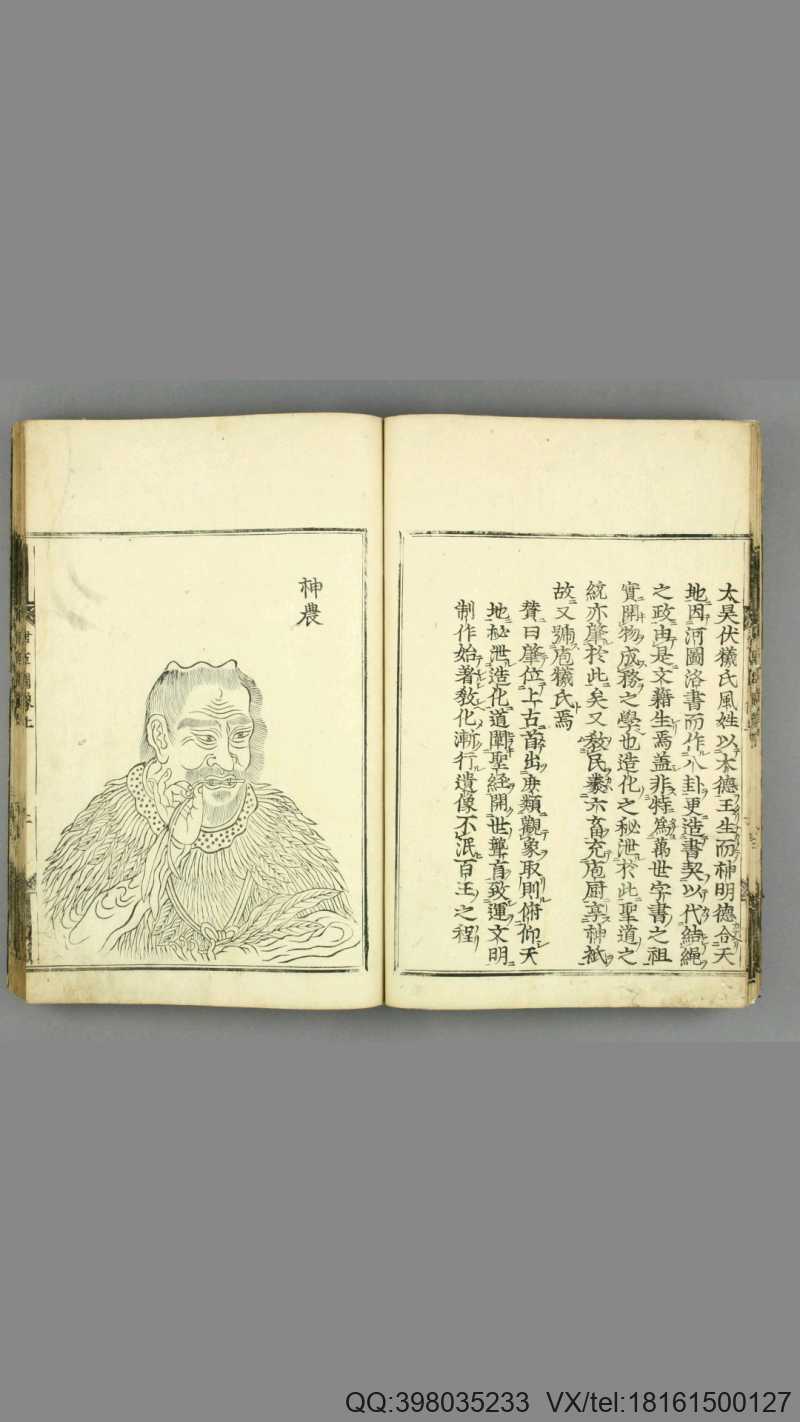 太昊伏犧氏風姓以木德王生而神明德合天
地因河圖洛書而作八卦更造書契以代結繩
之政由是文籍生焉蓋非特爲萬世字書之祖
實開物成務之學也造化之秘泄於此聖道之
統亦肇於此矣又教民豢六畜充庖厨享神祇
故又號庖犧氏焉
贊曰肇位上古首出庶類觀象取則俯仰天
地秘泄造化道闡聖經開世聾盲致運文明
制作始著教化漸行遺像不泯百王之程
神農
QQ:398035233 VX/tel:18161500127